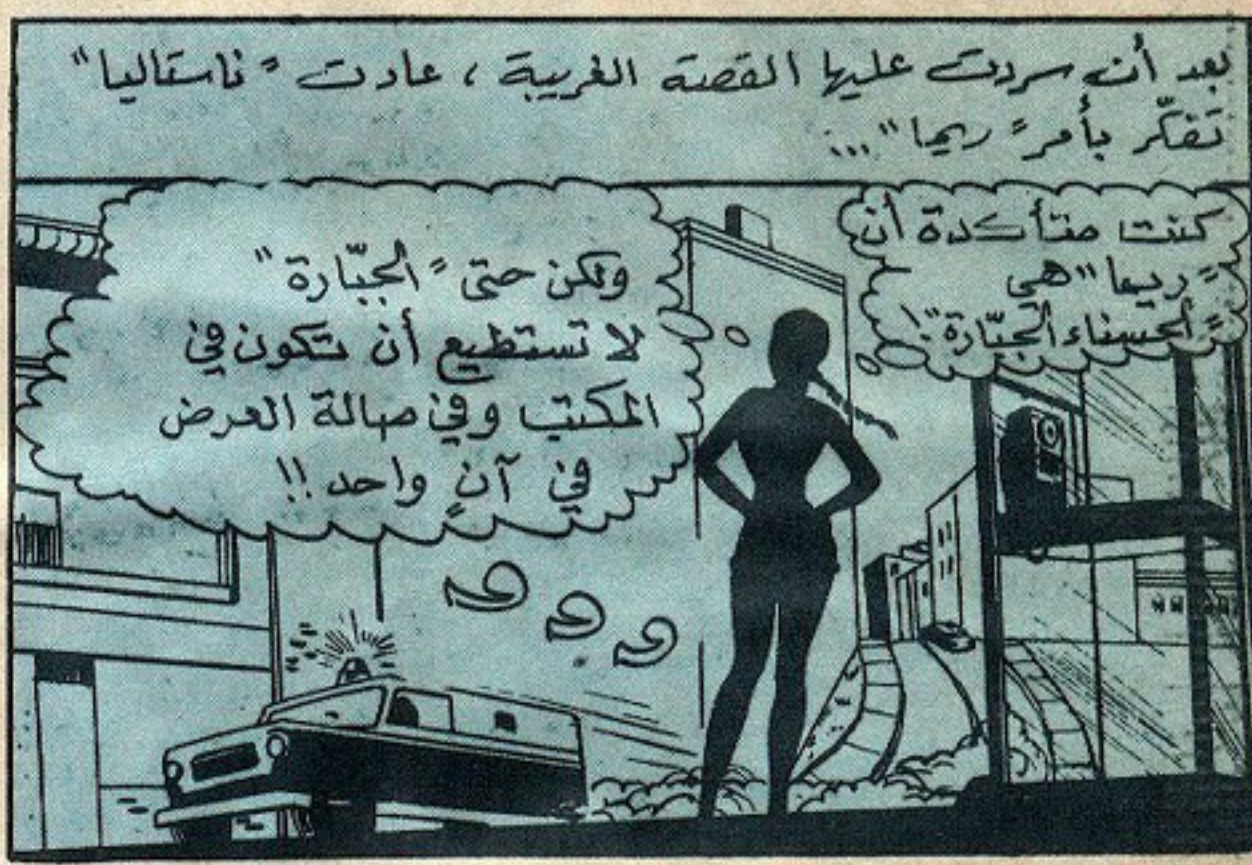 بعد أن سردت عليها القصة الغريبة ، عادت "ناستاليا"
تفكّر بأمر "ريما"...
كنت متأكدة أن
"ريما" هي
"الحسناء الجبّارة"!
ولكن حتى "الجبّارة"
لا تستطيع أن تكون في
المكتب وفي صالة العرض
في آنٍ واحد !!
و و و